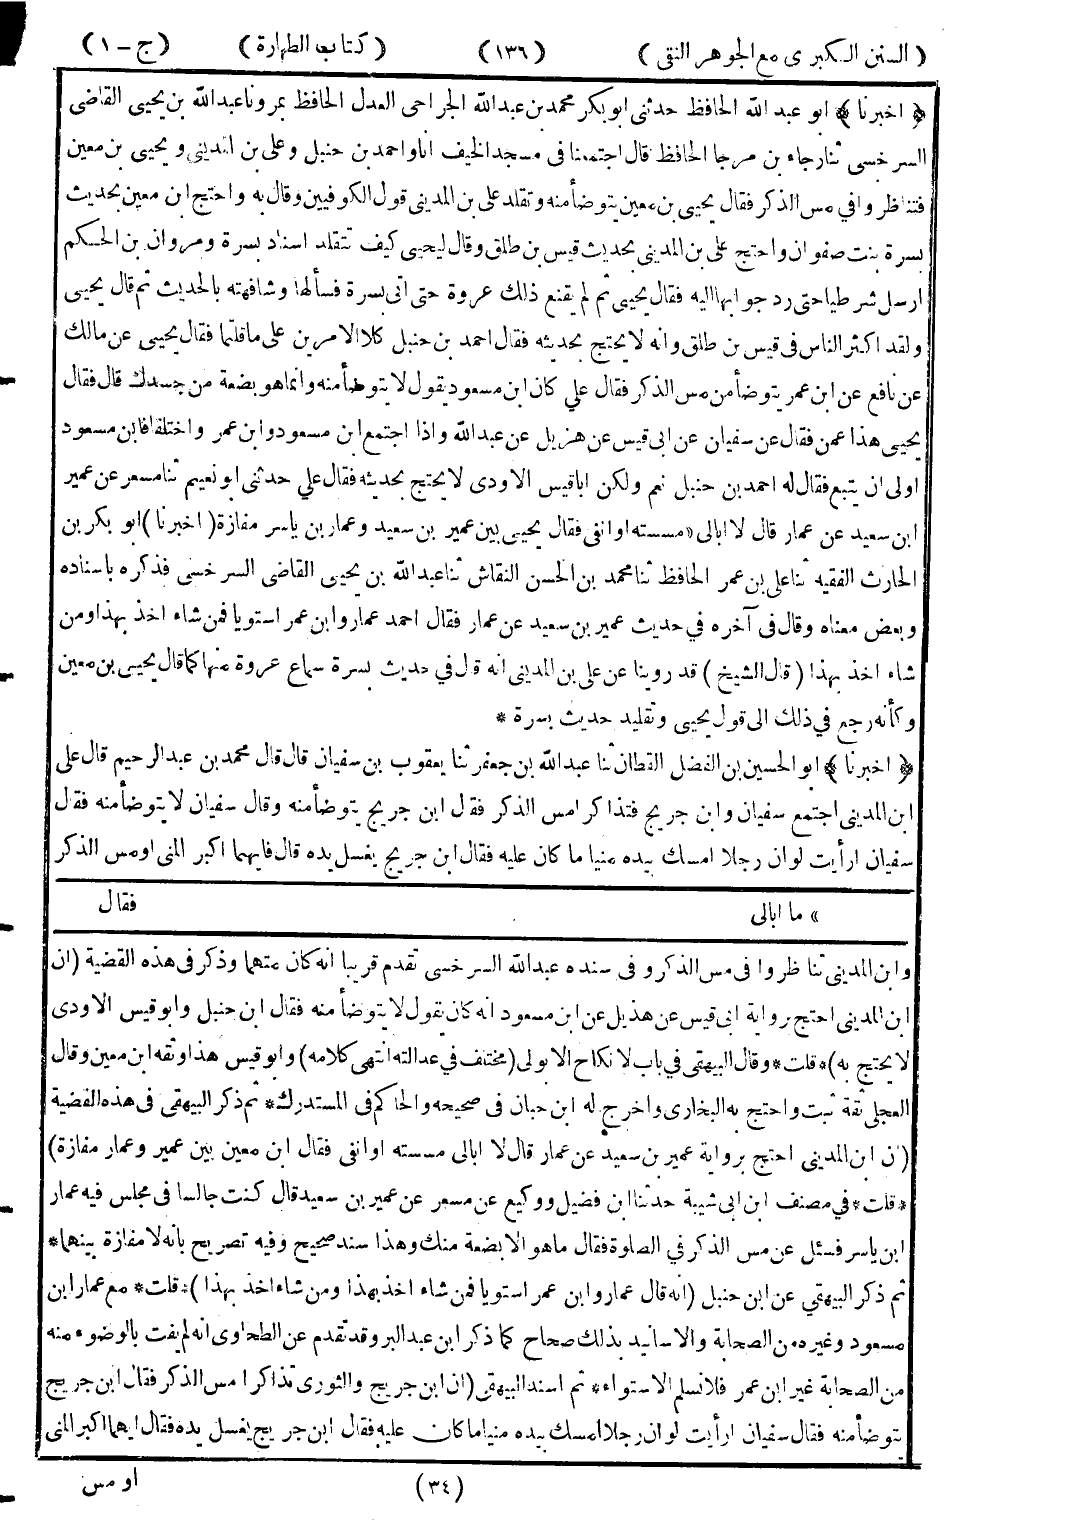 ( السنن الكبرى مع الجوهر النقى ) (١٣٦) ( كتاب الطهارة ) ( ج - ١ )
﴿ اخبرنا ﴾ ابو عبد الله الحافظ حدثنى ابو بكر محمد بن عبدالله الجراحى العدل الحافظ بمرو ثنا عبدالله بن يحيى القاضى
السرخسى ثنا رجاء بن مرجا الحافظ قال اجتمعنا فى مسجد الخيف انا واحمد بن حنبل وعلى بن المدينى ويحيى بن معين
فتناظروا في مس الذكر فقال يحيى بن معين يتوضأ منه وتقلد على بن المدينى قول الكوفيين وقال به واحتج ابن معين بحديث
بسرة بنت صفوان واحتج على بن المدينى بحديث قيس بن طلق وقال ليحيى كيف تتقلد اسناد بسرة ومروان بن الحكم
ارسل شرطيا حتى رد جوابها اليه فقال يحيى ثم لم يقنع ذلك عروة حتى اتى بسرة فسألها وشافهته بالحديث ثم قال يحيى
ولقد اكثر الناس فى قيس بن طلق وانه لا يحتج بحديثه فقال احمد بن حنبل كلا الامرين على ما قلتما فقال يحيى عن مالك
عن نافع عن ابن عمر يتوضأ من مس الذكر فقال علي كان ابن مسعود يقول لا يتوضأ منه وانما هو بضعة من جسدك قال فقال
يحيى هذا عمن فقال عن سفيان عن ابى قيس عن هزيل عن عبدالله واذا اجتمع ابن مسعود وابن عمر واختلفا فابن مسعود
اولى ان يتبع فقال له احمد بن حنبل نعم ولكن اباقيس الاودى لا يحتج بحديثه فقال علي حدثنى ابو نعيم ثنا مسعر عن عمير
ابن سعيد عن عمار قال لا ابالى » مسسته او انفى فقال يحيى بين عمير بن سعيد وعمار بن ياسر مفازة ( اخبرنا ) ابو بكر بن
الحارث الفقيه ثنا على بن عمر الحافظ ثنا محمد بن الحسن النقاش ثنا عبدالله بن يحيى القاضى السرخسى فذكره باسناده
وبعض معناه وقال فى آخره في حديث عمير بن سعيد عن عمار فقال احمد عمار وابن عمر استويا فمن شاء اخذ بهذا ومن
شاء اخذ بهذا ( قال الشيخ ) قد روينا عن على بن المدينى انه قال في حديث بسرة سماع عروة منها كما قال يحيى بن معين
وكأنه رجع في ذلك الى قول يحيى وتقليد حديث بسرة *
﴿ اخبرنا ﴾ ابو الحسين بن الفضل القطان ثنا عبدالله بن جعفر ثنا يعقوب بن سفيان قال قال محمد بن عبدالرحيم قال على
ابن المدينى اجتمع سفيان وابن جريج فتذاكرا مس الذكر فقال ابن جريج يتوضأ منه وقال سفيان لا يتوضأ منه فقال
سفيان ارأيت لو ان رجلا امسك بيده منيا ما كان عليه فقال ابن جريج يغسل يده قال فايهما اكبر المنى او مس الذكر
» ما ابالى فقال
وابن المدينى تناظروا فى مس الذكر و فى سنده عبدالله السرخسى تقدم قريبا انه كان متهما وذكر فى هذه القضية (ان
ابن المدينى احتج برواية ابى قيس عن هذيل عن ابن مسعود انه كان يقول لا يتوضأ منه فقال ابن حنبل وابو قيس الاودى
لا يحتج به) * قلت * وقال البيهقى في باب لا نكاح الا بولى (مختلف في عدالته انتهى كلامه) وابو قيس هذا وثقه ابن معين وقال
العجلى ثقة ثبت واحتج به البخارى واخرج له ابن حبان فى صحيحه والحاكم فى المستدرك * ثم ذكر البيهقى فى هذه القضية
(ان ابن المدينى احتج برواية عمير بن سعيد عن عمار قال لا ابالى مسسته او انفى فقال ابن معين بين عمير وعمار مفازة)
* قلت * في مصنف ابن ابى شيبة حدثنا ابن فضيل ووكيع عن مسعر عن عمير بن سعيد قال كنت جالسا فى مجلس فيه عمار
ابن ياسر فسئل عن مس الذكر في الصلوة فقال ماهو الا بضعة منك وهذا سند صحيح وفيه تصريح بانه لا مفازة بينهما *
ثم ذكر البيهقي عن ابن حنبل (انه قال عمار وابن عمر استويا فمن شاء اخذ بهذا ومن شاء اخذ بهذا ) * قلت * مع عمار ابن
مسعود وغيره من الصحابة والاسانيد بذلك صحاح كما ذكر ابن عبدالبر وقد تقدم عن الطحاوى انه لم يفت بالوضوء منه
من الصحابة غير ابن عمر فلا نسلم الاستواء * ثم اسند البيهقى (ان ابن جريج والثورى تذاكرا مس الذكر فقال ابن جريج
يتوضأ منه فقال سفيان ارأيت لو ان رجلا امسك بيده منيا ما كان عليه فقال ابن جريج يغسل يده فقال ايهما اكبر المنى
(٣٤) او مس